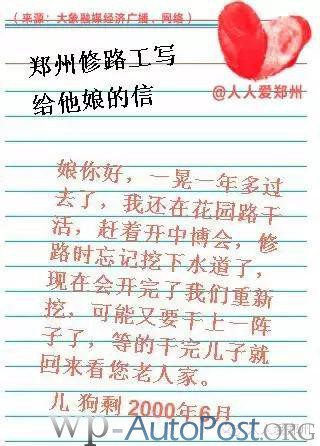 （来源：大象融媒经济广播、网络）
郑州修路工写
给他娘的信
@人人爱郑州
娘你好，一晃一年多过
去了，我还在花园路干
活，赶着开中博会，修
路时忘记挖下水道了，
现在会开完了我们重新
挖，可能又要干上一阵
子了，等的干完儿子就
回来看您老人家。
儿 狗剩 2000年6月
wp-AutoPost.ORG